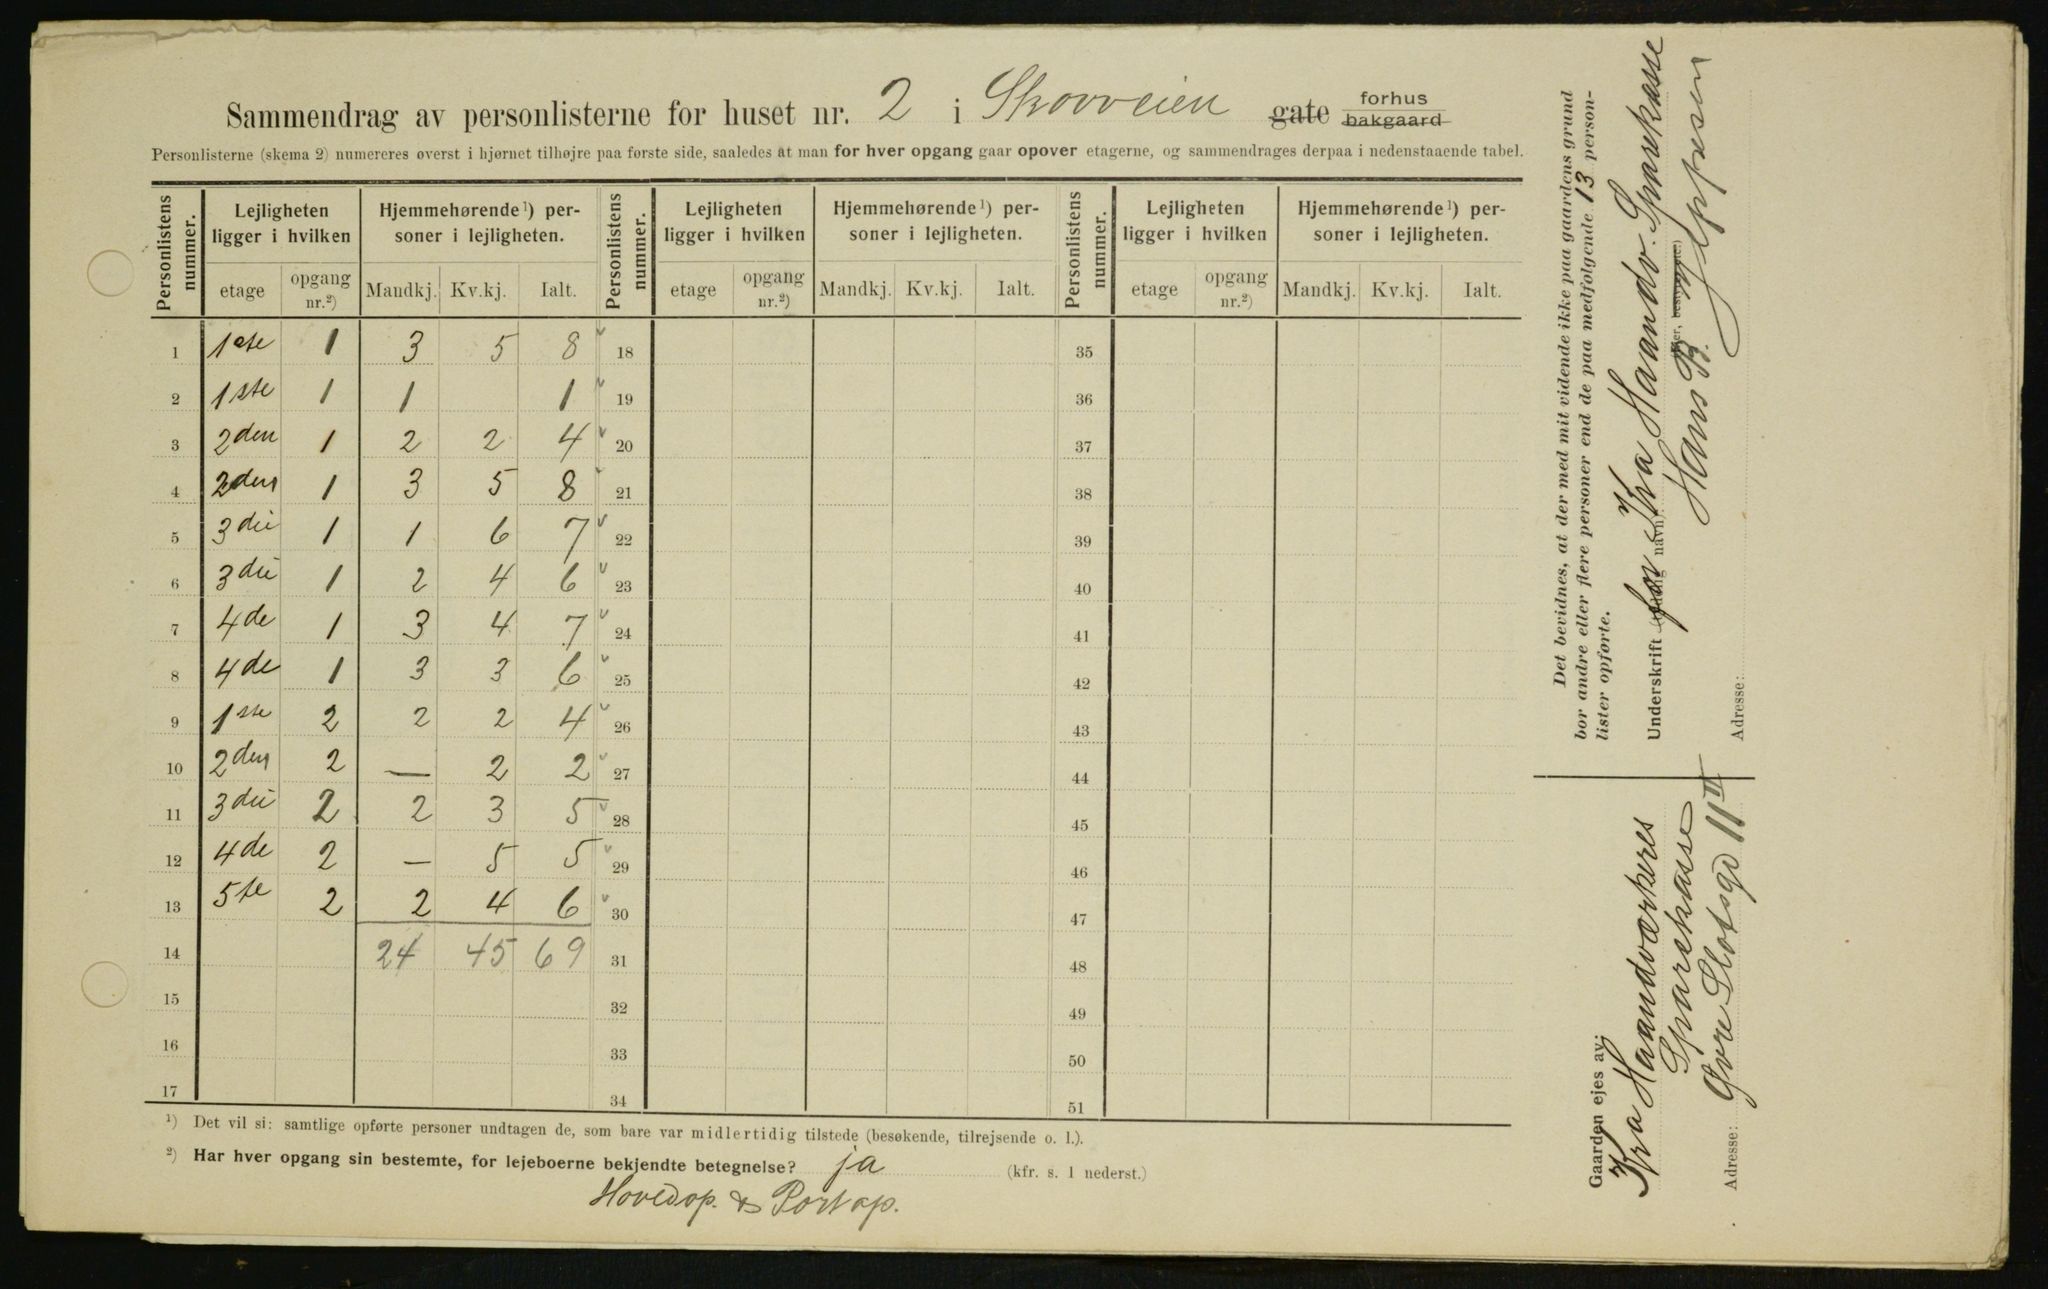 Sammendrag av personlisterne for huset nr. 2 i Skovveien gate forhus bakgaard
Personlisterne (skema 2) numereres øverst i hjørnet tilhøjre paa første side, saaledes at man for hver opgang gaar opover etagerne, og sammendrages derpaa i nedenstaaende tabel.
Personlistens nummer. Lejligheten ligger i hvilken Hjemmehørende¹) personer i lejligheten. Personlistens nummer. Lejligheten ligger i hvilken Hjemmehørende¹) personer i lejligheten. Personlistens nummer. Lejligheten ligger i hvilken Hjemmehørende¹) personer i lejligheten.
etage opgang nr.²) Mandkj. Kv.kj. Ialt. etage opgang nr.²) Mandkj. Kv.kj. Ialt. etage opgang nr.²) Mandkj. Kv.kj. Ialt.
1 1ste 1 3 5 8 v 18 35
2 1ste 1 1 1 v 19 36
3 2den 1 2 2 4 v 20 37
4 2den 1 3 5 8 v 21 38
5 3die 1 1 6 7 v 22 39
6 3die 1 2 4 6 v 23 40
7 4de 1 3 4 7 v 24 41
8 4de 1 3 3 6 v 25 42
9 1ste 2 2 2 4 v 26 43
10 2den 2 — 2 2 v 27 44
11 3die 2 2 3 5 v 28 45
12 4de 2 — 5 5 v 29 46
13 5te 2 2 4 6 v 30 47
14 24 45 69 31 48
15 32 49
16 33 50
17 34 51
¹) Det vil si: samtlige opførte personer undtagen de, som bare var midlertidig tilstede (besøkende, tilrejsende o. l.).
²) Har hver opgang sin bestemte, for lejeboerne bekjendte betegnelse? ja (kfr. s. 1 nederst.)
Hovedop. & Portop.
Det bevidnes, at der med mit vidende ikke paa gaardens grund
bor andre eller flere personer end de paa medfølgende 13 person-
lister opførte.
Underskrift for Kra Haandv. Sparekasse
Hans B. Jeppesen
Adresse:
Gaarden ejes av:
Kra Haandværkeres
Sparekasse
Adresse: Øvre Slotsgd 11 II